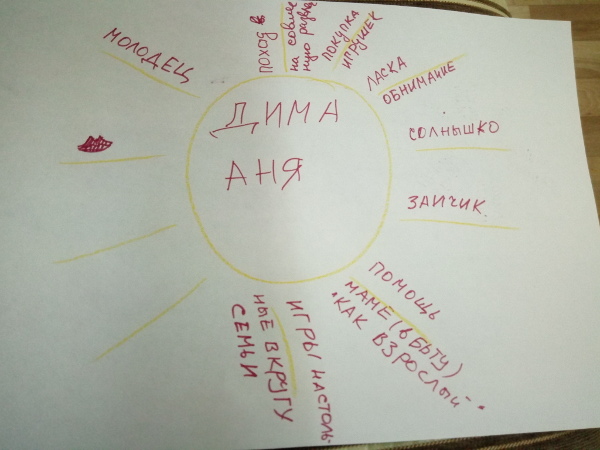 ДИМА
АНЯ
МОЛОДЕЦ
ПОХОД в
на совмест
ную развле
ПОКУПКА
ИГРУШЕК
ЛАСКА
ОБНИМАНИЕ
СОЛНЫШКО
ЗАЙЧИК.
ПОМОЩЬ
МАМЕ (в БЫТУ)
"КАК ВЗРОСЛЫЙ".
ИГРЫ НАСТОЛЬ-
НЫЕ В КРУГУ
СЕМЬИ